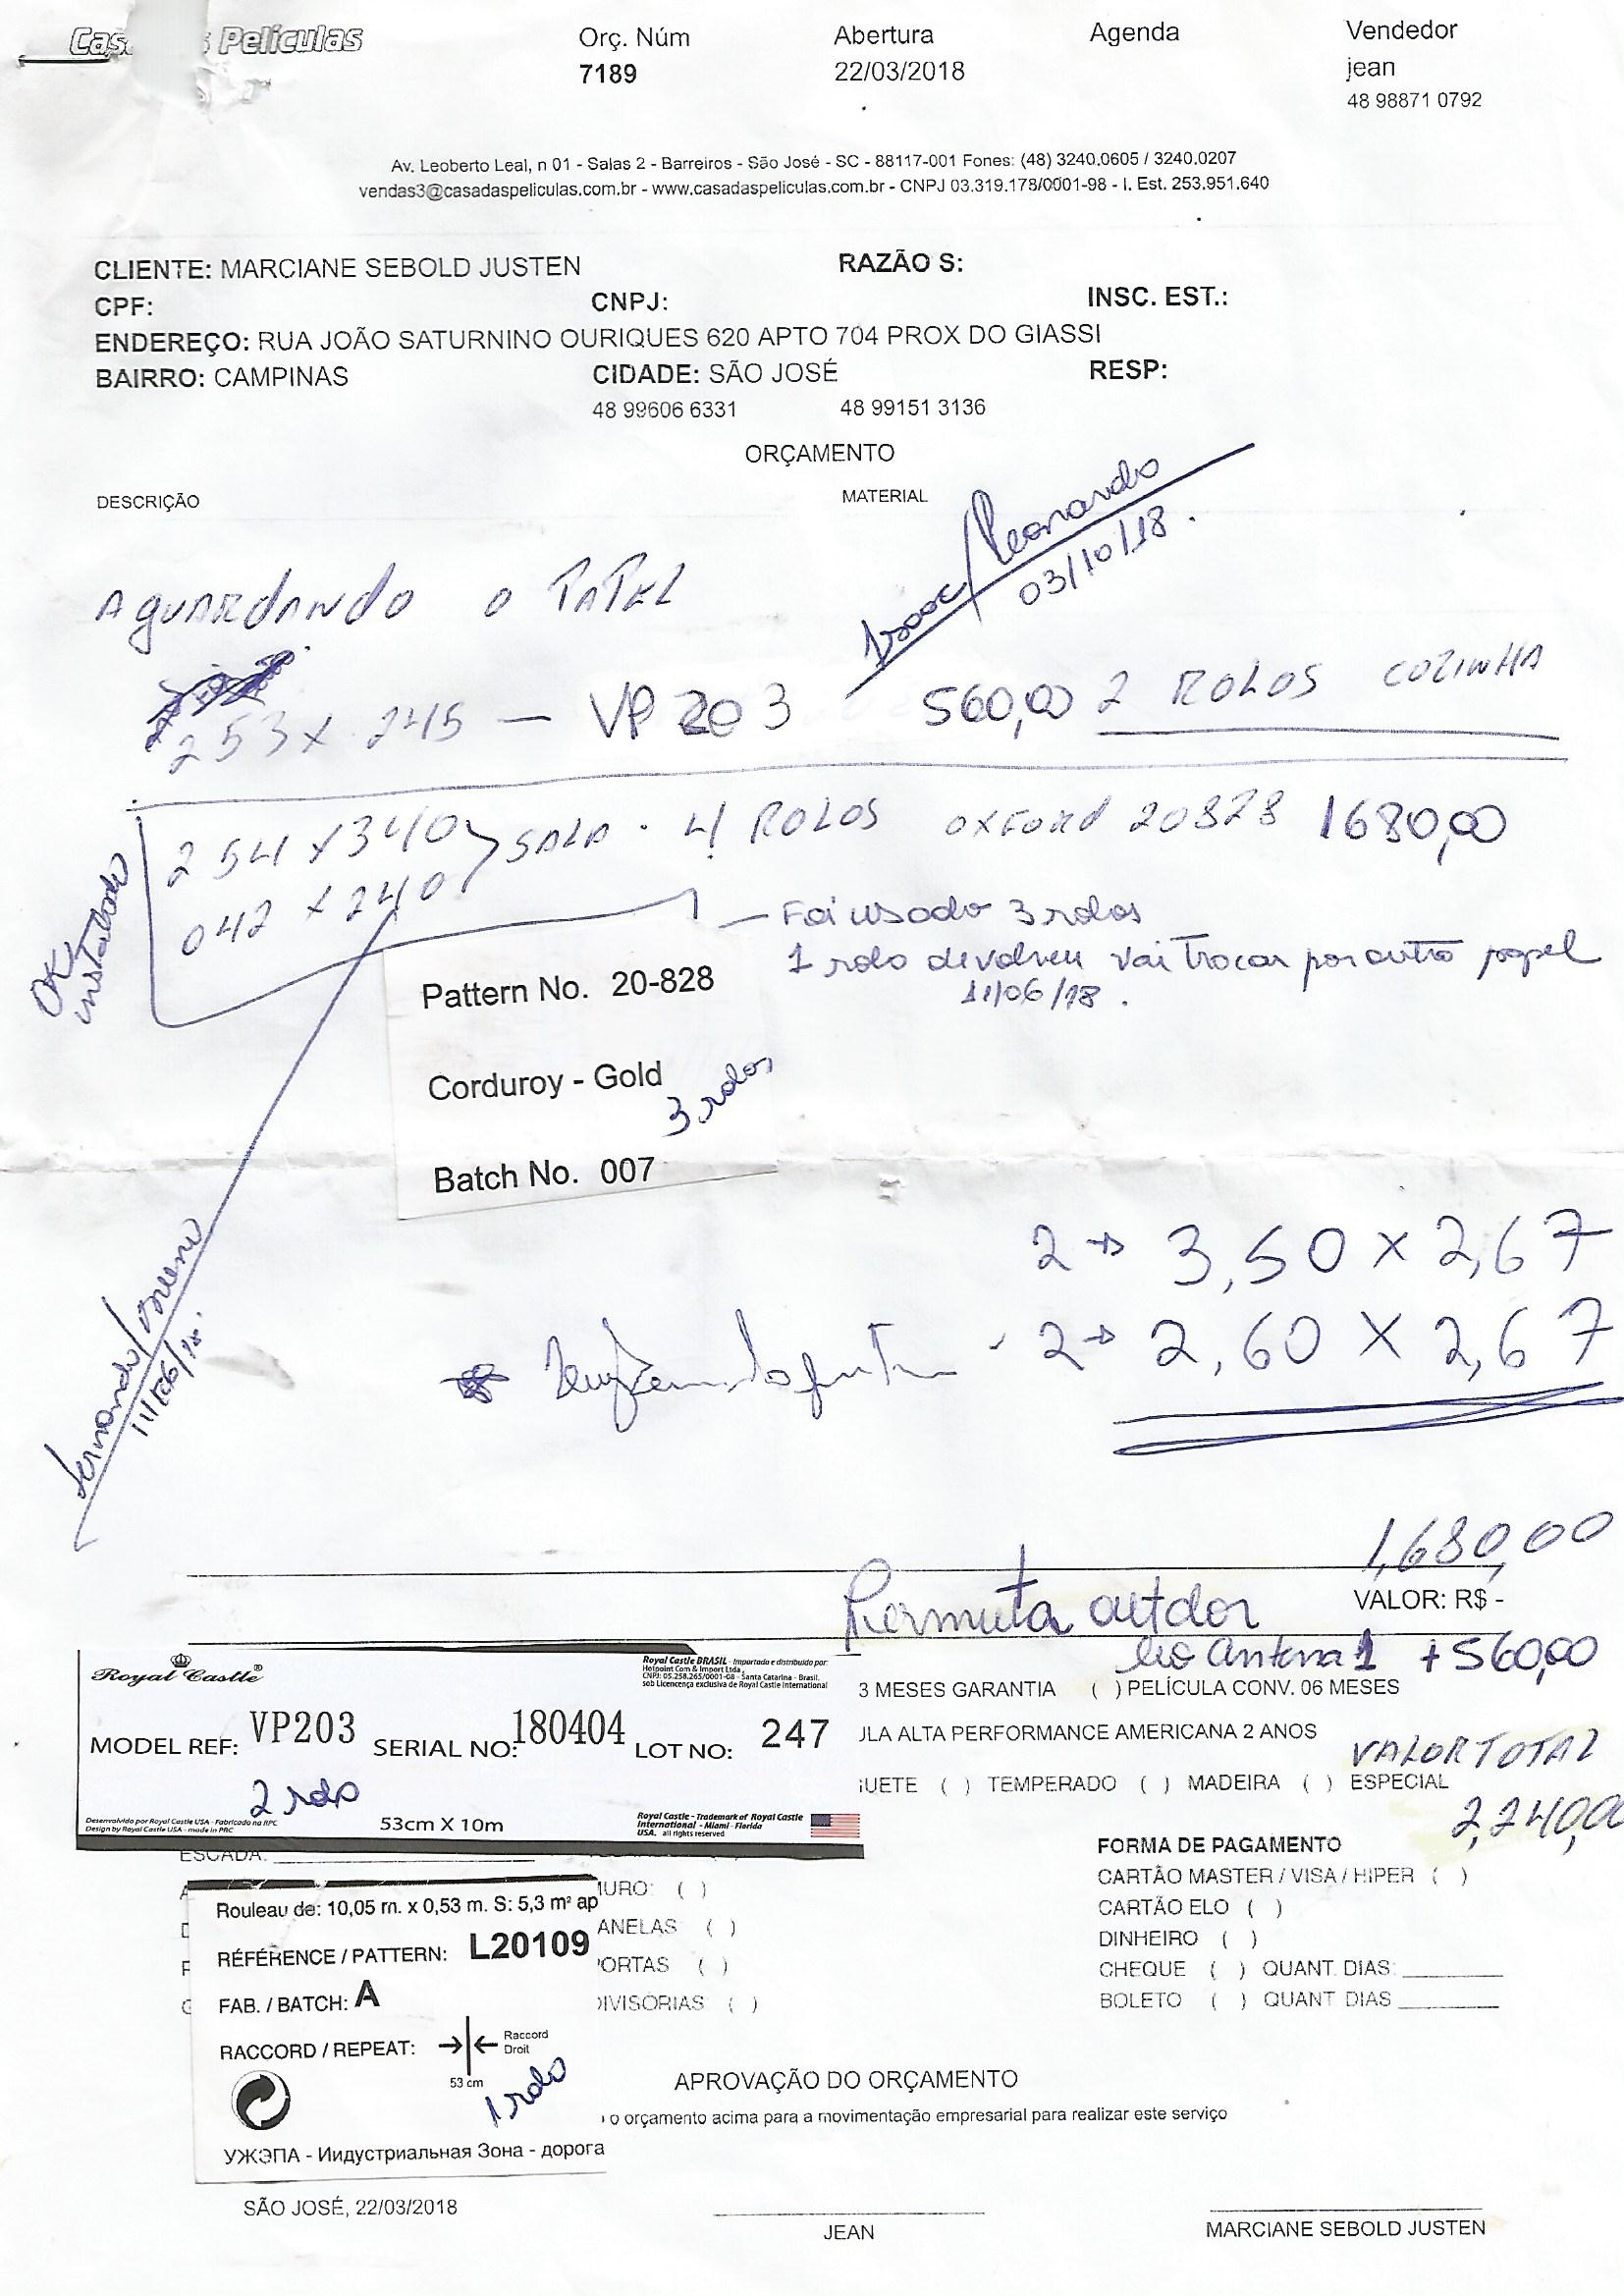 Películas
Orç. Núm
7189
Abertura
22/03/2018
Agenda
Vendedor
jean
48 98871 0792
Av. Leoberto Leal, n 01 - Salas 2 - Barreiros - São José - SC - 88117-001 Fones: (48) 3240.0605 / 3240.0207
vendas3@casadaspeliculas.com.br - www.casadaspeliculas.com.br - CNPJ 03.319.178/0001-98 - I. Est. 253.951.640
CLIENTE: MARCIANE SEBOLD JUSTEN RAZÃO S:
CPF: CNPJ: INSC. EST.:
ENDEREÇO: RUA JOÃO SATURNINO OURIQUES 620 APTO 704 PROX DO GIASSI
BAIRRO: CAMPINAS CIDADE: SÃO JOSÉ RESP:
48 99606 6331 48 99151 3136
ORÇAMENTO
DESCRIÇÃO MATERIAL
Isaac/Leonardo
03/10/18.
AGUARDANDO O PAPEL
253 x 245 — VP 203 560,00 2 ROLOS COZINHA
254 x 340 SALA - 4 ROLOS OXFORD 20828 1680,00
042 x 240
OK instalado
— Foi usado 3 rolos
1 rolo devolveu vai trocar por outro papel
11/06/18.
Pattern No. 20-828
Corduroy - Gold
3 rolos
Batch No. 007
2 → 3,50 x 2,67
2 → 2,60 x 2,67
Fernando/
11/06/18.
1,680,00
Permuta outdor
VALOR: R$ -
Antena 1 + 560,00
Royal Castle®
Royal Castle BRASIL - Importado e distribuido por:
Hotpoint Com & Import Ltda.
CNPJ: 05.258.265/0001-08 - Santa Catarina - Brasil.
sob Licencença exclusiva de Royal Castle International
3 MESES GARANTIA ( ) PELÍCULA CONV. 06 MESES
MODEL REF: VP203 SERIAL NO: 180404 LOT NO: 247
JLA ALTA PERFORMANCE AMERICANA 2 ANOS
VALOR TOTAL
UETE ( ) TEMPERADO ( ) MADEIRA ( ) ESPECIAL
2,240,00
2 rolo
Desenvolvido por Royal Castle USA - Fabricado na RPC
Design by Royal Castle USA - made in PRC
53cm X 10m
Royal Castle - Trademark of Royal Castle
International - Miami - Florida
USA. all rights reserved
ESCADA:
FORMA DE PAGAMENTO
CARTÃO MASTER / VISA / HIPER ( )
CARTÃO ELO ( )
DINHEIRO ( )
CHEQUE ( ) QUANT. DIAS:
BOLETO ( ) QUANT. DIAS
URO: ( )
ANELAS ( )
ORTAS ( )
IVISÓRIAS ( )
Rouleau de: 10,05 m. x 0,53 m. S: 5,3 m² ap
RÉFÉRENCE / PATTERN: L20109
FAB. / BATCH: A
RACCORD / REPEAT:
Raccord
Droit
53 cm
1 rolo
УЖЭПА - Индустриальная Зона - дорога
APROVAÇÃO DO ORÇAMENTO
o orçamento acima para a movimentação empresarial para realizar este serviço
SÃO JOSÉ, 22/03/2018
JEAN
MARCIANE SEBOLD JUSTEN